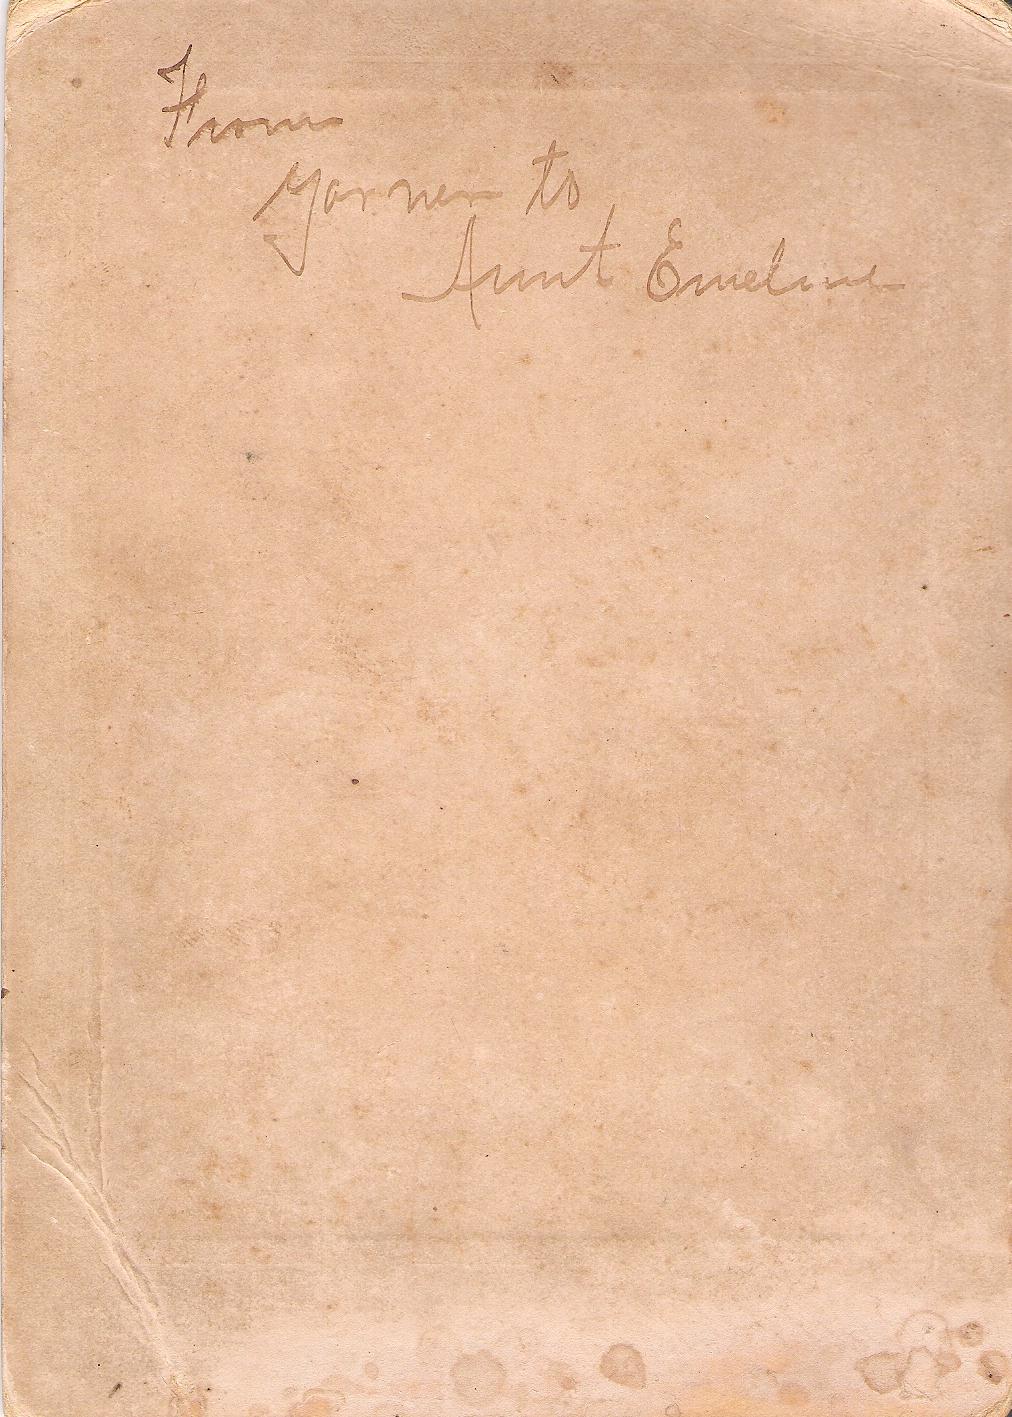 From
Yorner to
Aunt Emeline